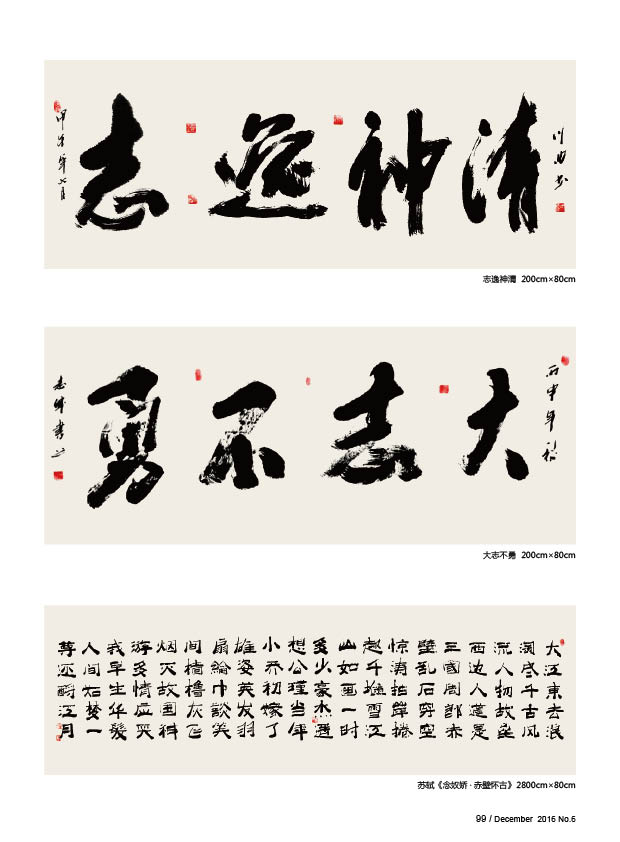 志逸神清
甲午年七月
志逸神清 200cm×80cm
丙申年秋
大志不勇
大志不勇 200cm×80cm
大江東去浪
淘尽千古风
流人物故垒
西边人道是
三國周郎赤
壁乱石穿空
惊涛拍岸捲
起千堆雪江
山如画一时
多少豪杰遥
想公瑾当年
小乔初嫁了
雄姿英发羽
扇纶巾談笑
间樯橹灰飞
烟灭故国神
游多情应笑
我早生华髮
人间如梦一
尊还酹江月
苏轼《念奴娇·赤壁怀古》2800cm×80cm
99 / December 2016 No.6